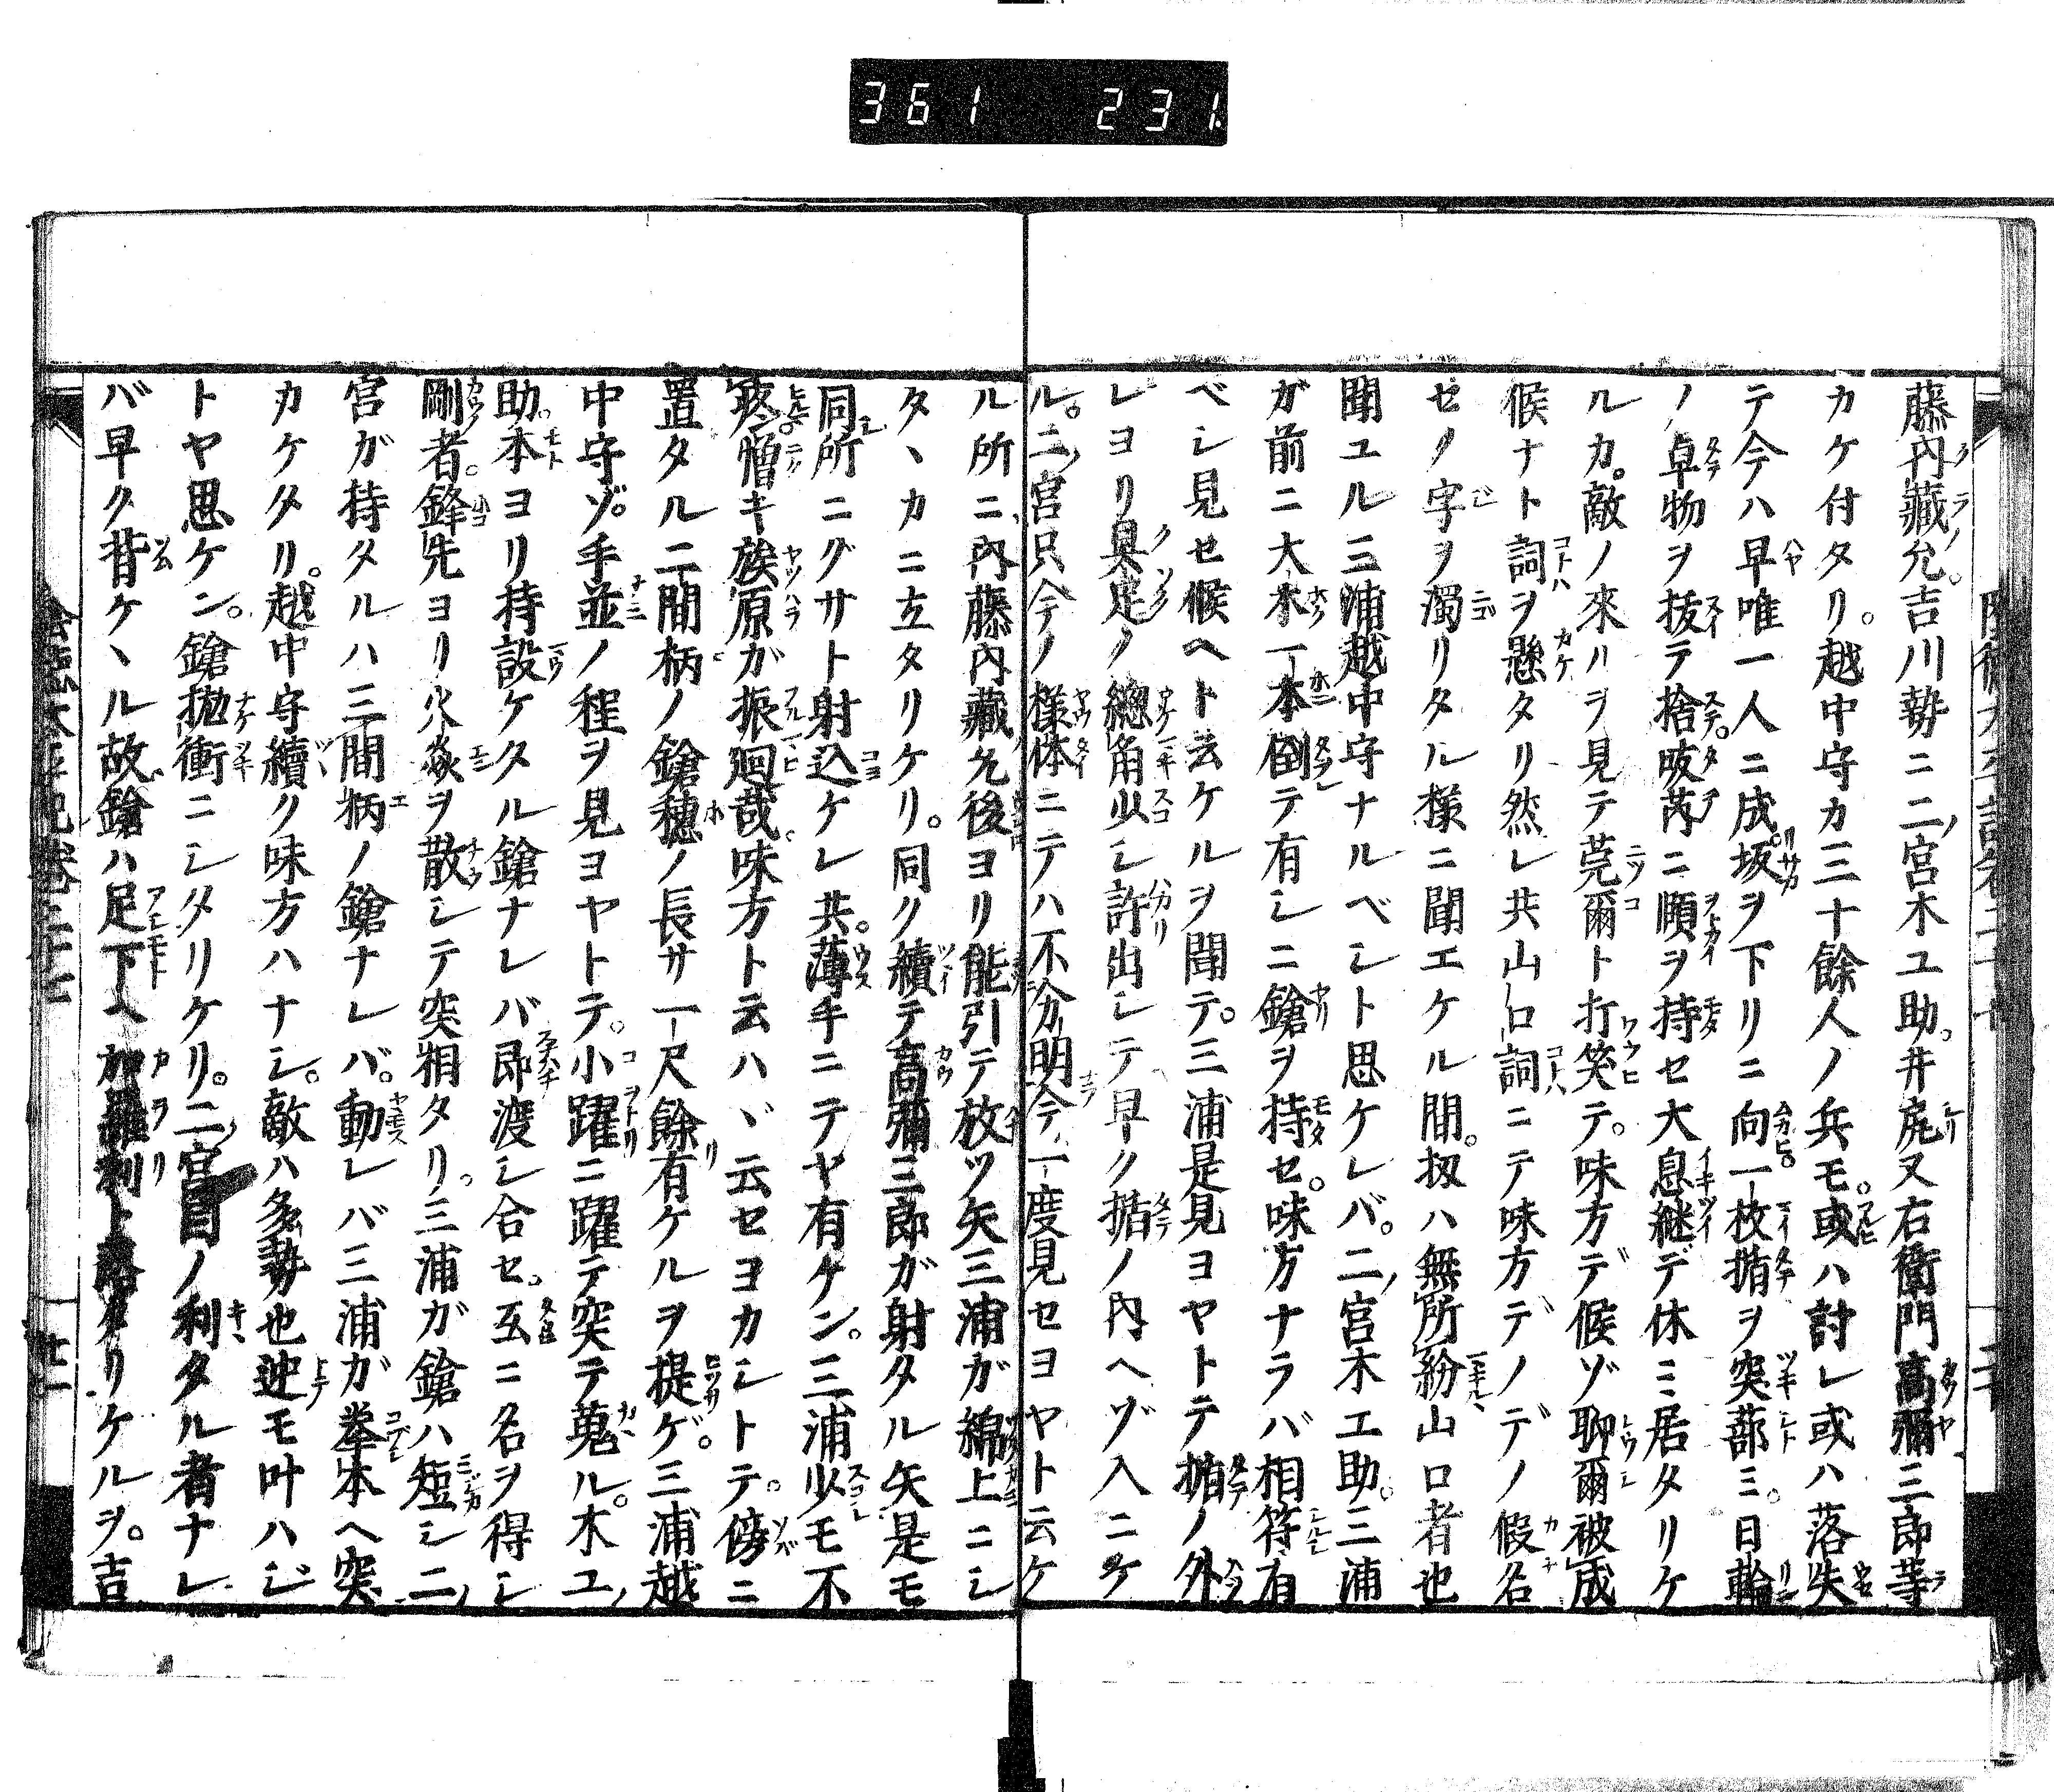 361 231
藤内藏允。吉川勢ニ二宮木ユ助。井㞍又右衛門高彌三郎等
カケ付タリ。越中守カ三十餘人ノ兵モ。或ハ討レ或ハ落失
テ今ハ早唯一人ニ成。坂ヲ下リニ向。一枚楯ヲ突蔀ミ。日輪
ノ卓物ヲ抜テ捨。咳芮ニ頤ヲ持セ大息継デ休ミ居タリケ
ルカ。敵ノ來ルヲ見テ莞爾ト打笑テ。味方デ候ゾ聊爾被成
候ナト詞ヲ懸タリ然レ共山口詞ニテ味方デノデノ假名
セノ字ヲ濁リタル様ニ聞エケル間。扨ハ無所紛山口者也
聞ユル三浦越中守ナルベシト思ケレバ。二宮木工助。三浦
ガ前ニ大木一本倒テ有シニ鎗ヲ持セ。味方ナラバ相符有
ベシ見セ候ヘト云ケルヲ聞テ。三浦是見ヨヤトテ楯ノ外
レヨリ具足ノ總角少シ許出シテ早ク楯ノ内ヘゾ入ニケ
ル。二宮只今ノ様体ニテハ不分明今一度見セヨヤト云ケ
ル所ニ内藤内藏允後ヨリ能引テ放ツ矢三浦ガ綿上ニシ
タヽカニ立タリケリ。同ク續テ高彌三郎ガ射タル矢是モ
同所ニグサト射込ケレ共。薄手ニテヤ有ケン。三浦少モ不
疼。憎キ族原ガ振廻哉。味方ト云ハヾ云セヨカシトテ。傍ニ
置タル二間柄ノ鎗穂ノ長サ一尺餘有ケルヲ提ゲ。三浦越
中守ゾ。手並ノ程ヲ見ヨヤトテ。小躍ニ躍テ突テ蒐ル。木ユ
助。本ヨリ持設ケタル鎗ナレバ即渡シ合セ。互ニ名ヲ得シ
剛者。鋒先ヨリ火焱ヲ散シテ突相タリ。三浦ガ鎗ハ短シ二
宮ガ持タルハ三間柄ノ鎗ナレバ。動レバ三浦ガ拳本ヘ突
カケタリ。越中守續ク味方ハナシ。敵ハ多勢也迚モ叶ハジ
トヤ思ケン。鎗抛衝ニシタリケリ。二宮目ノ利タル者ナレ
バ早ク背ケヽル故鎗ハ足下ヘ加羅利ト落タリケルヲ。吉